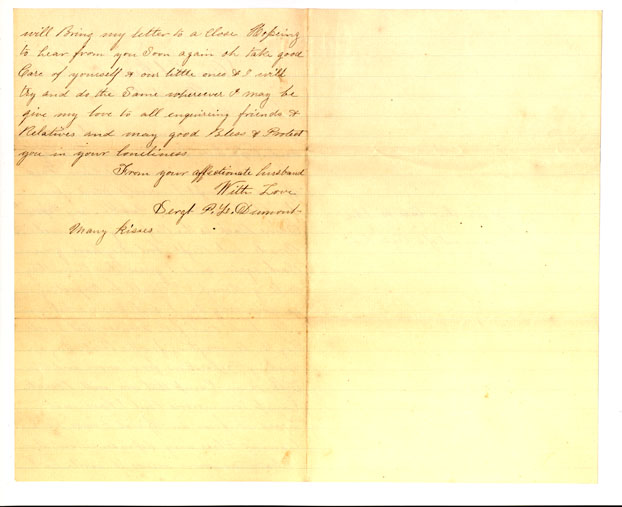 will Bring my letter to a Close Hopeing
to hear from you Soon again oh take good
Care of yourself & our little ones & I will
try and do the Same wherever I may be
give my love to all enquireing friends &
Relatives and may good Bless & Protect
you in your loneliness
From your affectionate husband
With Love
Sergt P. Dumont
Many kisses